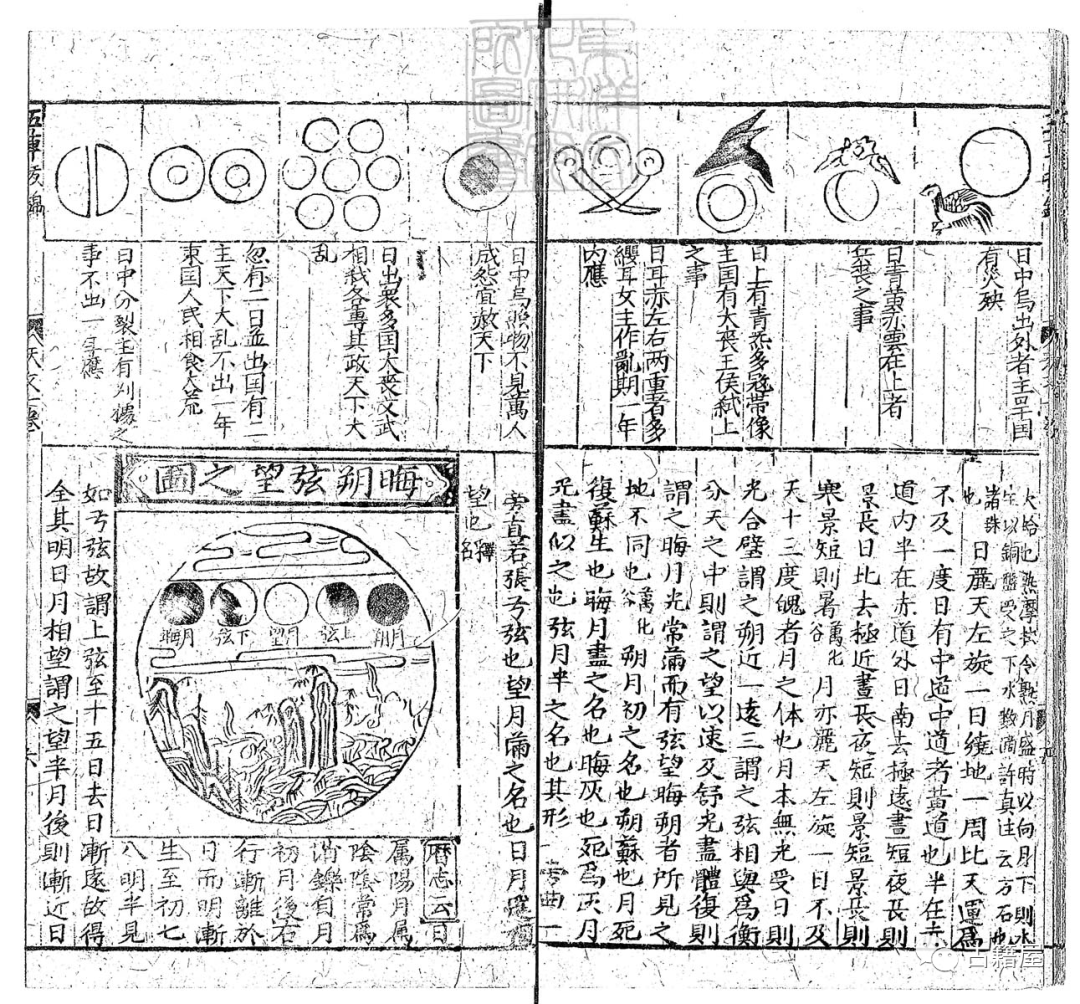 日中烏出外者主旱国
有災殃
日青黃赤雲在上者
兵喪之事
日上有青炁多冠帶像
主国有大喪王侯弑上
之事
日耳赤左右两重者多
纓耳女主作亂期一年
內應
日中烏照物不見萬人
成怨宜赦天下
日出衆多国大喪文武
相殺各專其政天下大
乱
忽有一日並出国有二
主天下大乱不出一年
東国人民相食大荒
日中分裂主有刈據之
事不出一年應
火蛤也熟摩拭令熱月盛時以向月下則水
生以銅盤受之下水數滴許真注云方石也
諸珠
也 日麗天左旋一日繞地一周比天運爲
不及一度日有中道中道者黃道也半在赤
道內半在赤道外日南去極遠晝短夜長則
景長日北去極近晝長夜短則景短景長則
寒景短則暑萬化谷 月亦麗天左旋一日不及
天十三度魄者月之体也月本無光受日則
光合璧謂之朔近一遠三謂之弦相與爲衡
分天之中則謂之望以速及舒光盡體復則
謂之晦月光常滿而有弦望晦朔者所見之
地不同也萬化谷 朔月初之名也朔蘇也月死
復蘇生也晦月盡之名也晦灰也死爲灰月
光盡似之也弦月半之名也其形一旁曲一
旁直若張弓弦也望月滿之名也日月遙
望也釋名
晦朔弦望之圖
月朔
上弦
月望
下弦
月晦
曆志云日
属陽月属
陰陰常爲
消鑠自月
初月後右
行漸離於
日而明漸
生至初七
八明半見
如弓弦故謂上弦至十五日去日漸遠故得
全其明日月相望謂之望半月後則漸近日
天文
古籍屋